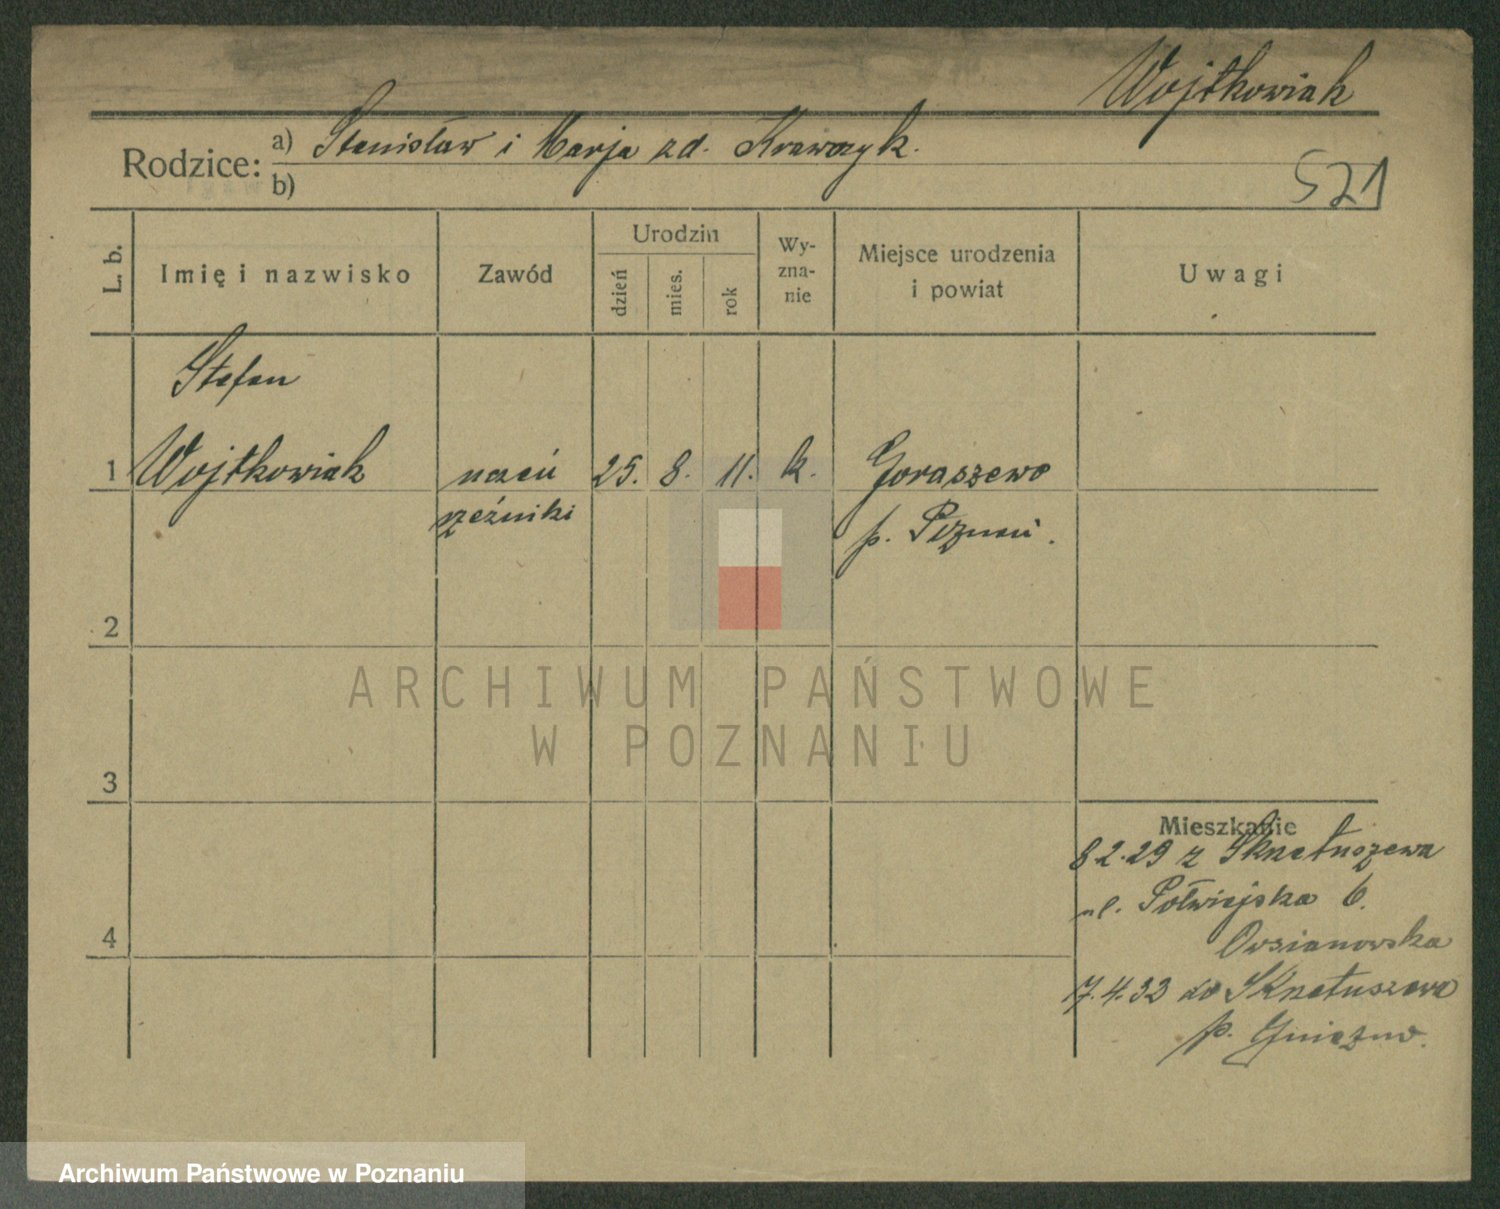 Wojtkowiak
Rodzice: a) Stanisław i Marja zd. Krawczyk.
b)
521
L. b.
Imię i nazwisko
Zawód
Urodzin
dzień
mies.
rok
Wy-
zna-
nie
Miejsce urodzenia
i powiat
Uwagi
Stefan
1 Wojtkowiak uczeń 25. 8. 11. k. Goraszewo
rzeźnicki p. Poznań.
2
ARCHIWUM PAŃSTWOWE
W POZNANIU
3
Mieszkanie
8 2.29 z
ul. Półwiejska 6.
Owsianowska
4
7.4.33 do
p. Gniezno.
Archiwum Państwowe w Poznaniu